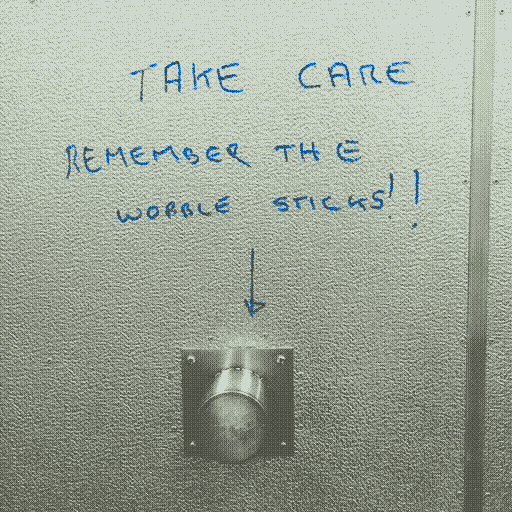 TAKE CARE
REMEMBER THE
WOBBLE STICKS!!